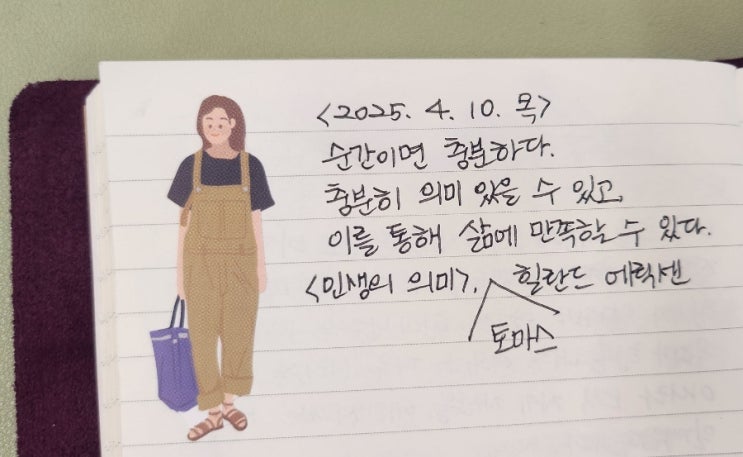 <2025. 4. 10. 목>
순간이면 충분하다.
충분히 의미 있을 수 있고,
이를 통해 삶에 만족할 수 있다.
<인생의 의미>, 힐란드 에릭센
토마스